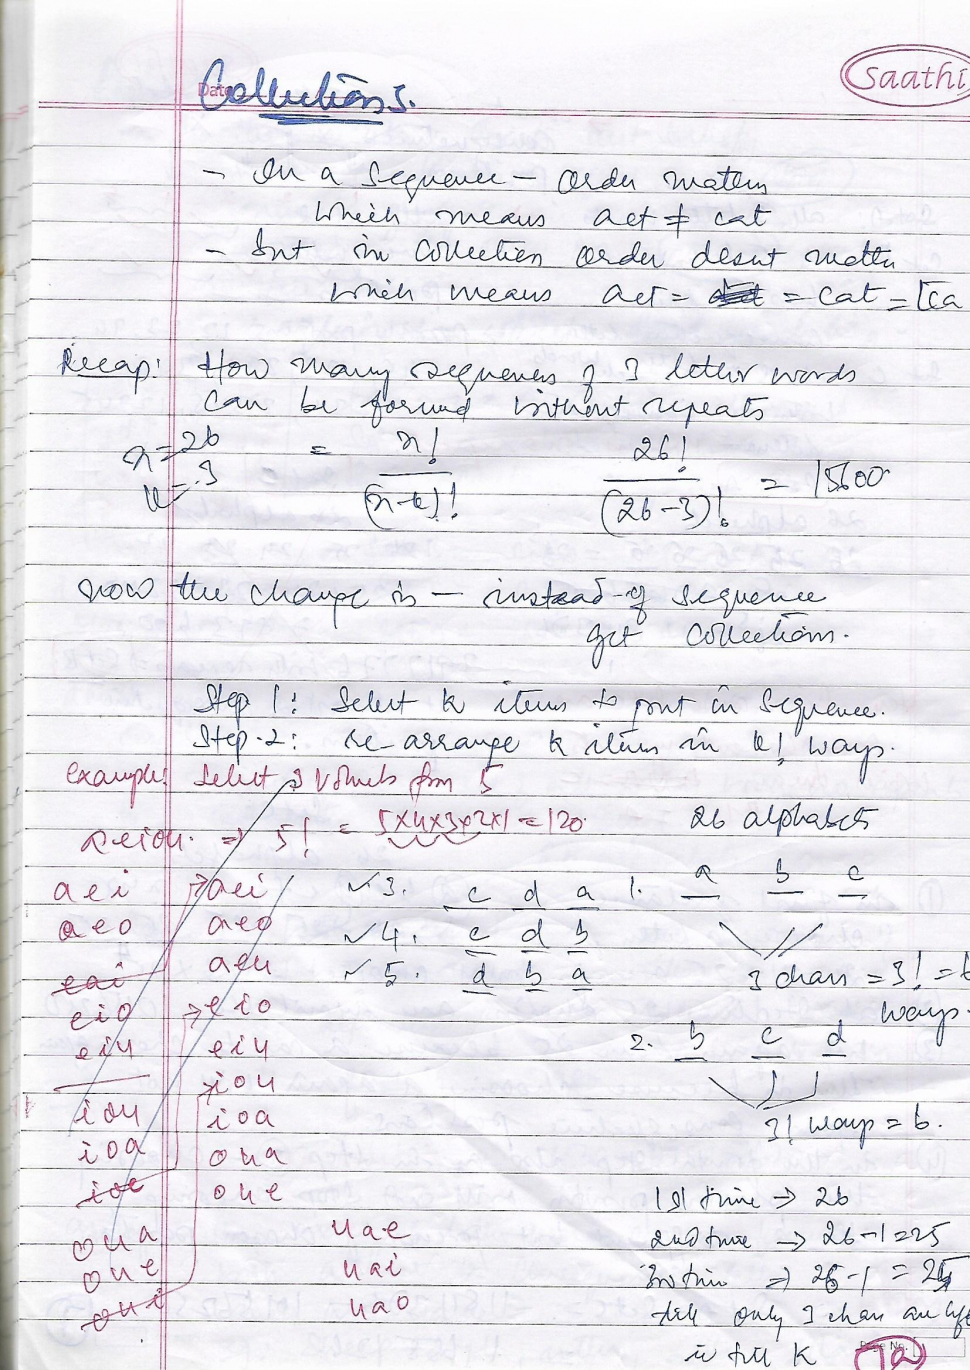 Saathi
Date
Collections.
- In a Sequence - order matters
which means act ≠ cat
- but in Collection order desnt matter
which means act = = cat = [ca
Recap: How many sequences of 3 letter words
can be formed without repeats
n=26
k=3
= n! / (n-k)! 26! / (26-3)! = 15600
now the change is - instead of sequence
get collections.
Step 1: Select k items to put in Sequence.
Step-2: re-arrange k items in k! ways.
example: Select 3 vowels from 5
aeiou. => 5! = 5x4x3x2x1 = 120. 26 alphabets
aei aei ✓3. c d a 1. a b c
aeo aeo ✓4. c d b
eai aeu ✓5. d b a 3 chars = 3! = 6
ways.
eio eio
eiu eiu 2. b c d
iou iou
ioa ioa 3! ways = 6.
ioe oua
oue
oua uae
oue uai
oui uao
1st time => 26
2nd time -> 26-1=25
3rd time => 26-1 = 25
till only 3 char are left
ie till K
Page No.